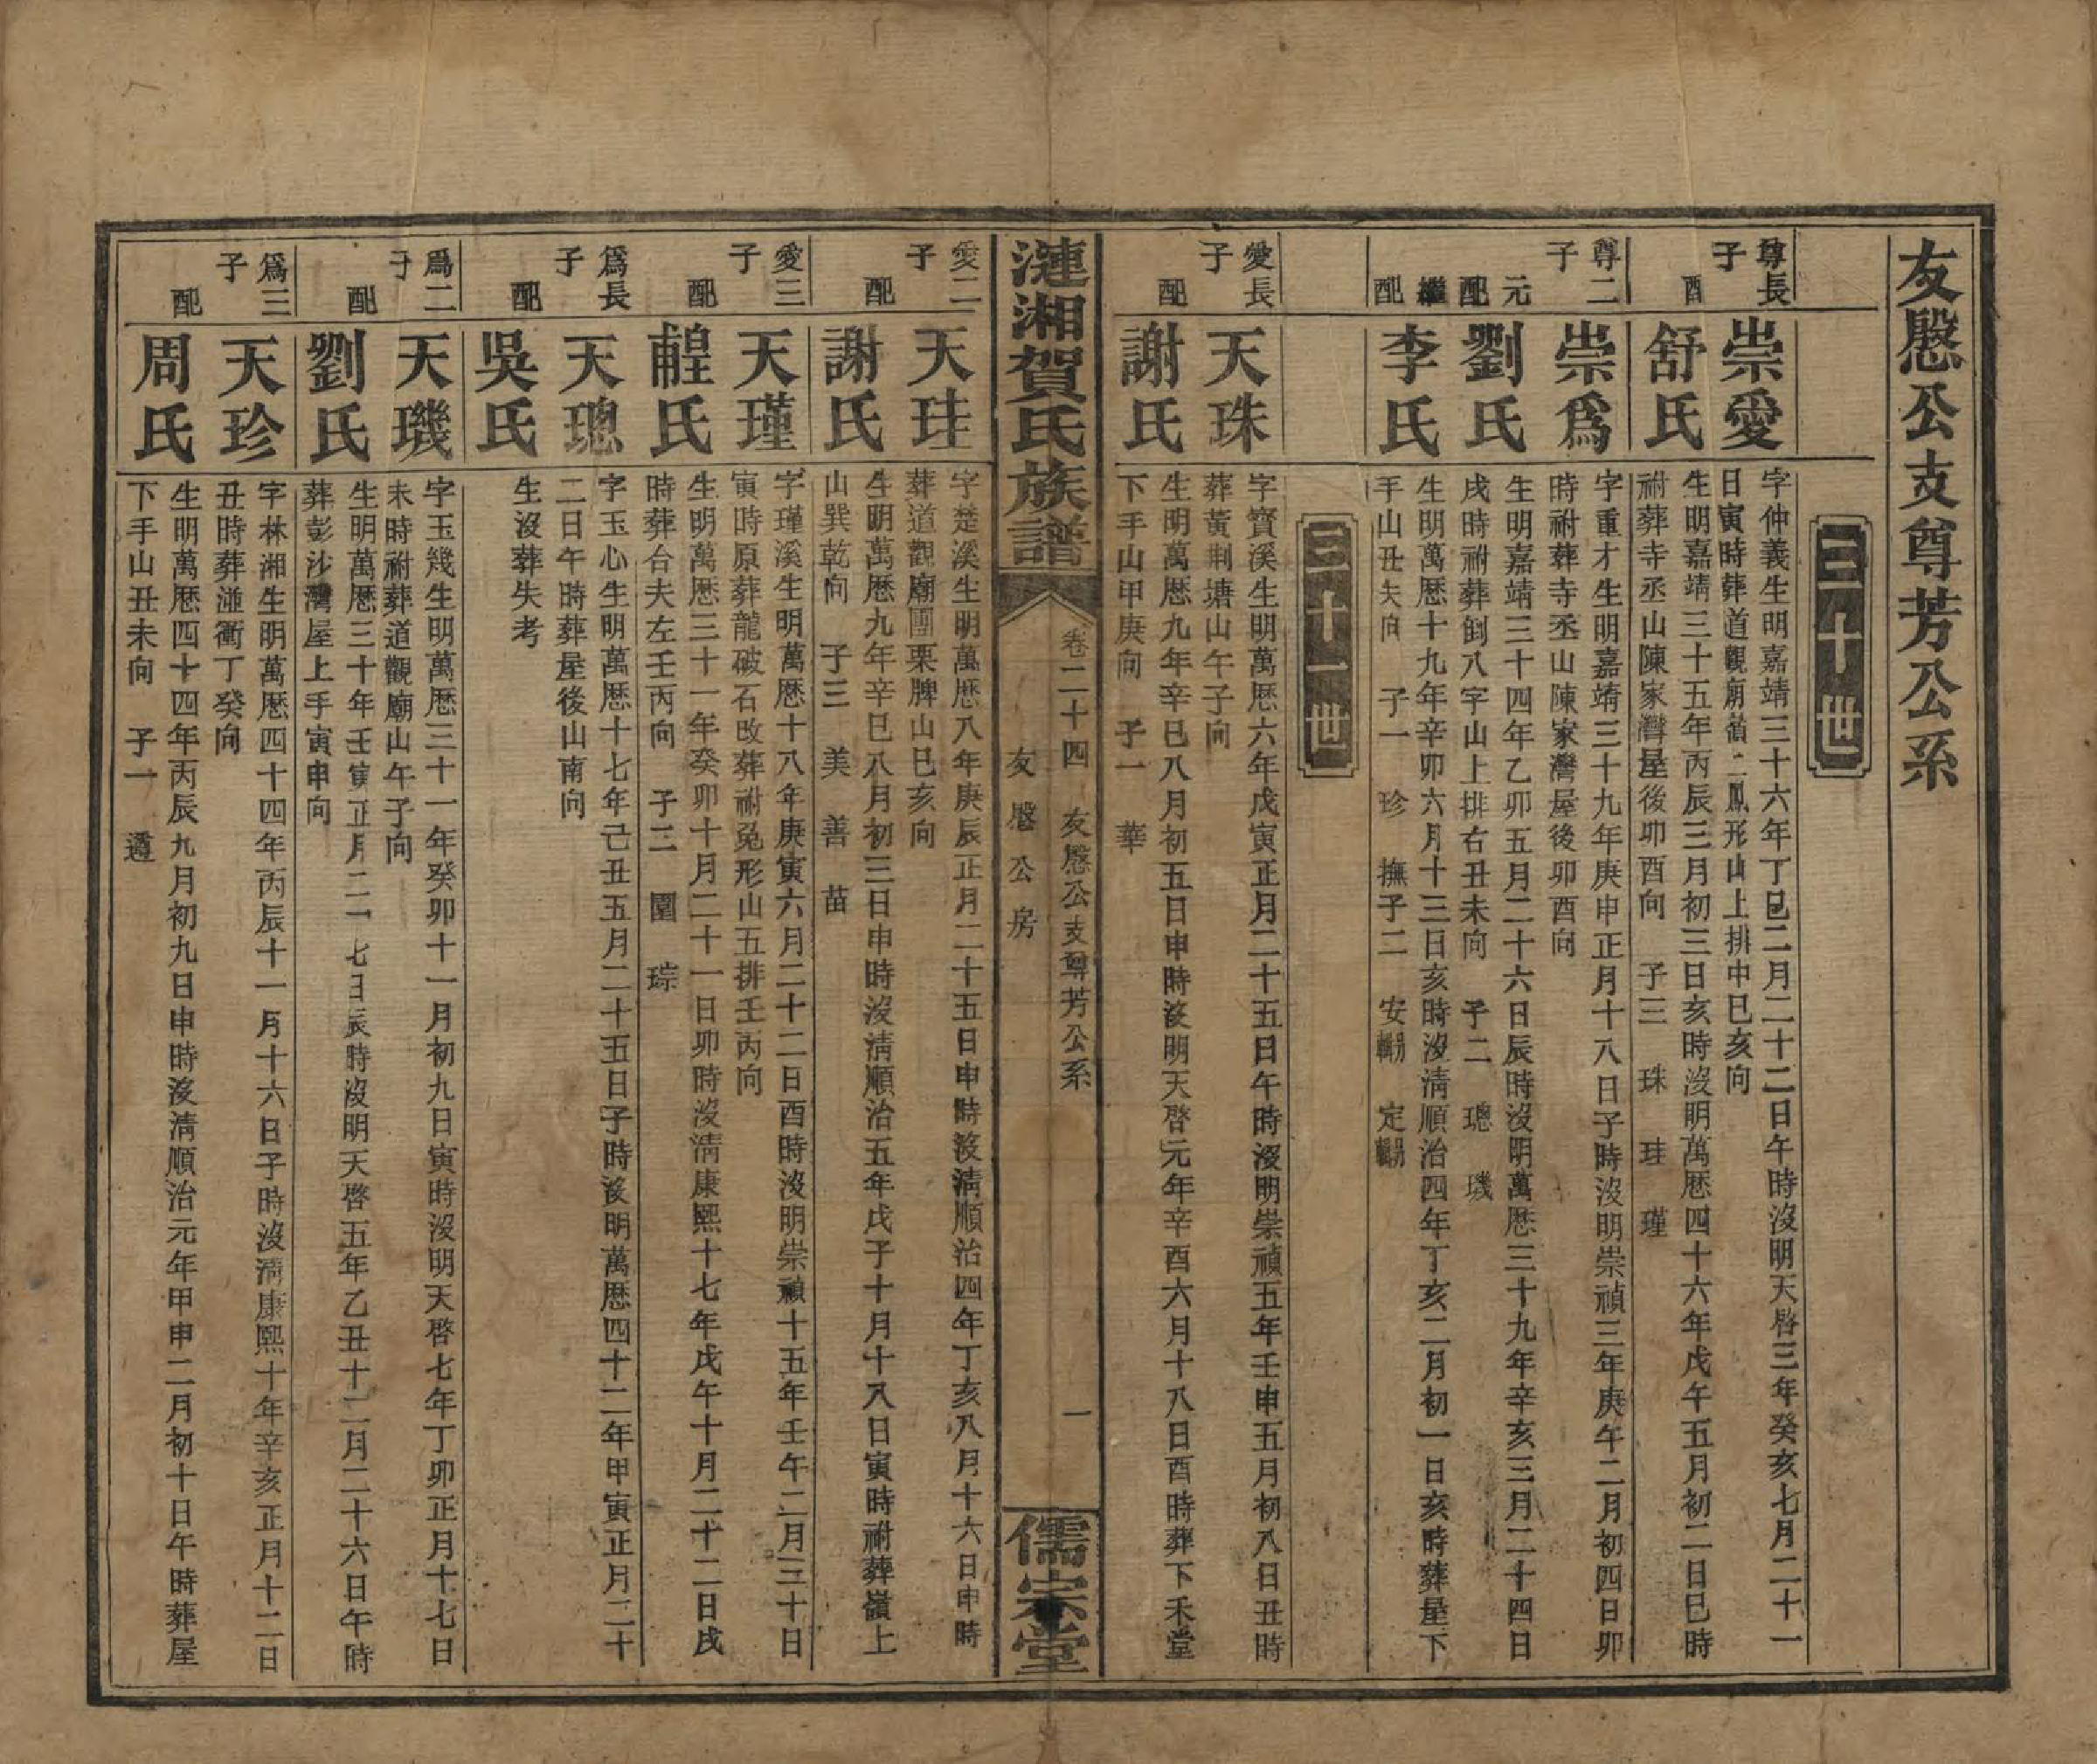 友慇公支尊芳公系
三十世
尊長子
崇愛
字仲義生明嘉靖三十六年丁巳二月二十二日午時沒明天啓三年癸亥七月二十一
日寅時葬道觀廟前二鳳形山上排中巳亥向
配
舒氏
生明嘉靖三十五年丙辰三月初三日亥時沒明萬歷四十六年戊午五月初二日巳時
祔葬寺丞山陳家灣屋後卯酉向 子三 珠 珪 瑾
尊二子
崇爲
字重才生明嘉靖三十九年庚申正月十八日子時沒明崇禎三年庚午二月初四日卯
時祔葬寺丞山陳家灣屋後卯酉向
元配
劉氏
生明嘉靖三十四年乙卯五月二十六日辰時沒明萬歷三十九年辛亥三月二十四日
戌時祔葬倒八字山上排右丑未向 子二 璁 璣
繼配
李氏
生明萬歷十九年辛卯六月十三日亥時沒清順治四年丁亥二月初一日亥時葬屋下
手山丑矢向 子一 珍 撫子二 安 定
三十一世
愛長子
天珠
字寳溪生明萬歷六年戊寅正月二十五日午時沒明崇禎五年壬申五月初八日丑時
葬黃荆塘山午子向
配
謝氏
生明萬歷九年辛巳八月初五日申時沒明天啓元年辛酉六月十八日酉時葬下禾堂
下手山甲庚向 子一 華
漣湘賀氏族譜
卷二十四 友慇公支尊芳公系 一
友慇公房
儒宗堂
愛二子
天珪
字楚溪生明萬歷八年庚辰正月二十五日申時沒清順治四年丁亥八月十六日申時
葬道觀廟團栗脾山巳亥向
配
謝氏
生明萬歷九年辛巳八月初三日申時沒清順治五年戊子十月十八日寅時祔葬嶺上
山巽乾向 子三 美 善 苗
愛三子
天瑾
字瑾溪生明萬歷十八年庚寅六月二十二日酉時沒明崇禎十五年壬午二月三十日
寅時原葬龍破石改葬祔兔形山五排壬丙向
配
氏
生明萬歷三十一年癸卯十月二十一日卯時沒清康熙十七年戊午十月二十二日戌
時葬合夫左壬丙向 子二 圍 琮
爲長子
天璁
字玉心生明萬歷十七年己丑五月二十五日子時沒明萬歷四十二年甲寅正月二十
二日午時葬屋後山南向
配
吳氏
生沒葬失考
爲二子
天璣
字玉幾生明萬歷三十一年癸卯十一月初九日寅時沒明天啓七年丁卯正月十七日
未時祔葬道觀廟山午子向
配
劉氏
生明萬歷三十年壬寅正月二十七日辰時沒明天啓五年乙丑十二月二十六日午時
葬彭沙灣屋上手寅申向
爲三子
天珍
字林湘生明萬歷四十四年丙辰十一月十六日子時沒清康熙十年辛亥正月十二日
丑時葬湴衝丁癸向
配
周氏
生明萬歷四十四年丙辰九月初九日申時沒清順治元年甲申二月初十日午時葬屋
下手山丑未向 子一 遵